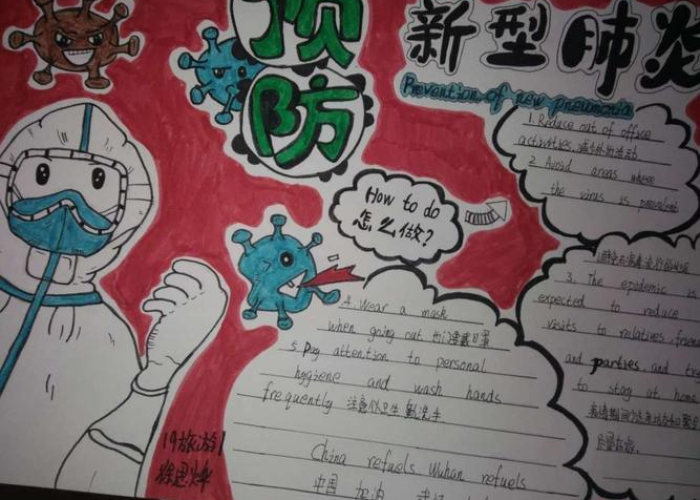 预防
新型肺炎
Prevention of new pneumonia
How to do
怎么做?
1. Reduce out of office
activities. 减少外出活动
2. Avoid areas where
the virus is prevalent
3. The epidemic is
expected to reduce
visits to relatives, friends
and parties, and try
to stay at home.
4. Wear a mask
when going out 出门要戴口罩
5. Pay attention to personal
hygiene and wash hands
frequently 注意个人卫生 勤洗手.
China refuels Wuhan refuels
中国 加油 武汉 加油
19旅游1